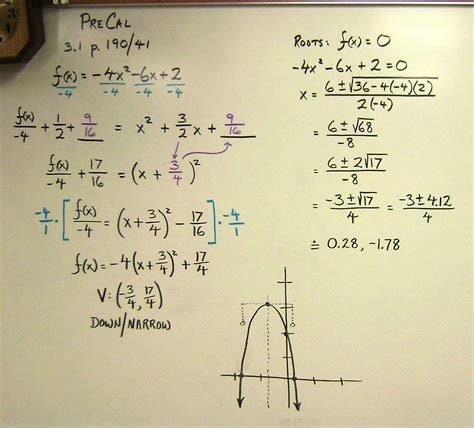 PreCal
3.1 p. 190/41
f(x)/-4 = -4x²/-4 - 6x/-4 + 2/-4
f(x)/-4 + 1/2 + 9/16 = x² + 3/2 x + 9/16
f(x)/-4 + 17/16 = (x + 3/4)²
-4/1 · [ f(x)/-4 = (x + 3/4)² - 17/16 ] · -4/1
f(x) = -4(x + 3/4)² + 17/4
V = (-3/4, 17/4)
DOWN/NARROW
ROOTS: f(x) = 0
-4x² - 6x + 2 = 0
x = 6 ± √36 - 4(-4)(2) / 2(-4)
= 6 ± √68 / -8
= 6 ± 2√17 / -8
= -3 ± √17 / 4 = -3 ± 4.12 / 4
≐ 0.28, -1.78